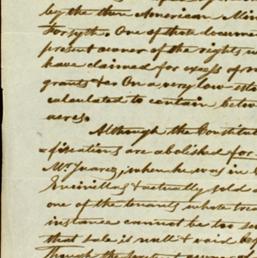 by the then American Min
Forsyth. One of these documen
present owner of the rights un
have claimed for excess of
grants &c. On a very low esti
calculated to contain betwe
acres.
Although the Constitut
fications are abolished for
Mr. Juarez, when he was in C
Encinillas & actually sold
one of the tenants whose trea
instance cannot be too se
that sale is null & void by
Though the present owner